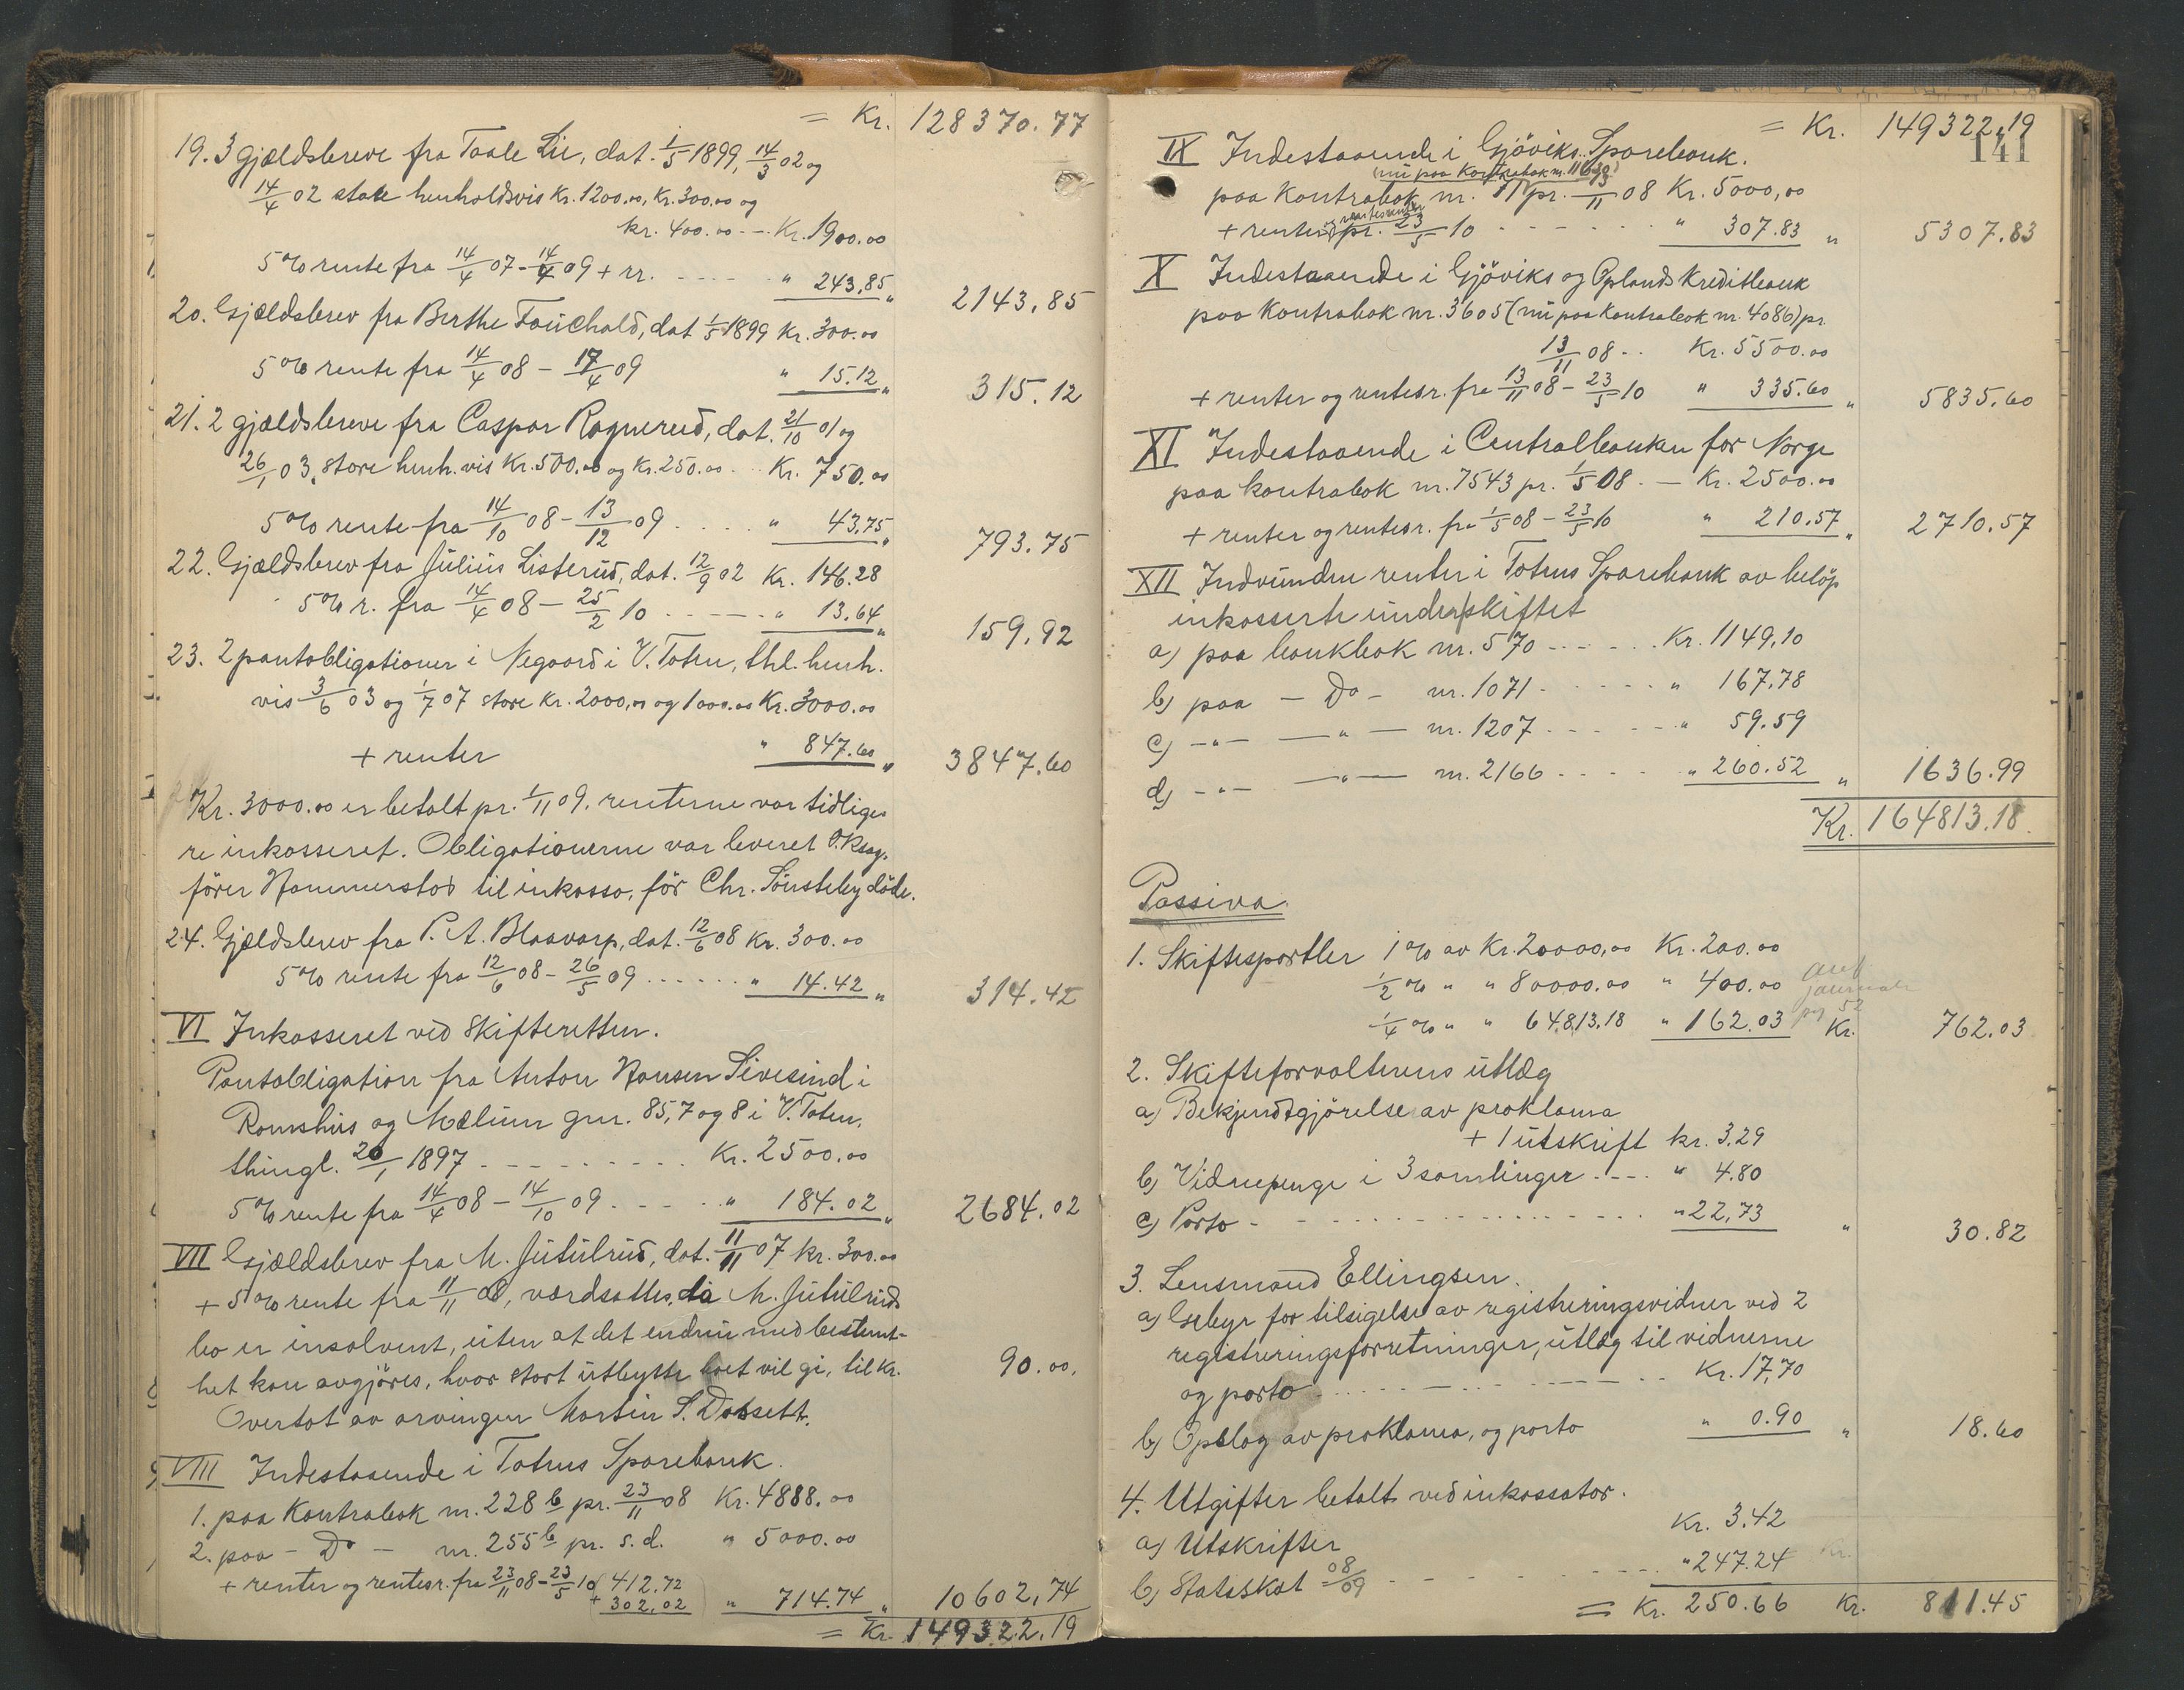 = Kr. 128370.77
19. 3 gjældsbreve fra Taale Lie, dat. 1/5 1899, 14/3 02 og
14/4 02 store henholdsvis Kr. 1200.00, Kr. 300.00 og
kr. 400.00 -- Kr. 1900.00
5 % rente fra 14/4 07 - 14/4 09 + rr. ----- " 243,85 " 2143,85
20. Gjældsbrev fra Berthe Fauchald, dat 1/5 1899 Kr. 300.00
5 % rente fra 14/4 08 - 17/4 09 " 15.12 " 315.12
21. 2 gjældsbreve fra Caspar Rognerud, dat. 21/10 01 og
26/1 03, store henh. vis Kr. 500.00 og Kr. 250.00 -- Kr. 750.00
5 % rente fra 14/10 08 - 13/12 09 .... " 43.75 " 793.75
22. Gjældsbrev fra Julius Listerud, dat. 12/9 02 Kr. 146.28
5 % r. fra 14/4 08 - 25/2 10 ----- " 13.64 " 159.92
23. 2 pantobligationer i Negaard i V. Toten, thl. henh.
vis 3/6 03 og 1/7 07 store Kr. 2000,00 og 1000.00 Kr. 3000.00
+ renter " 847.60 " 3847.60
Kr. 3000.00 er betalt pr. 1/11 09, renterne var tidlige-
re inkasseret. Obligationerne var leveret O.Rsag-
fører Hammerstad til inkasso, før Chr. Sønsteby døde.
24. Gjældsbrev fra P. A. Blaavarp, dat. 12/6 08 Kr. 300.00
5 % rente fra 12/6 08 - 26/5 09 ...... " 14.42 " 314.42
VI Inkasseret ved skifteretten.
Pantobligation fra Anton Hansen Sivesind i
Romshus og Mælum gnr. 85, 7 og 8 i V. Toten,
thingl. 26/1 1897 --------- Kr. 2500.00
5 % rente fra 14/4 08 - 14/10 09 ----- " 184.02 " 2684.02
VII Gjældsbrev fra M. Jutulrud, dat. 11/11 07 kr. 300.00
+ 5 % rente fra 11/11 08, værdsattes, da M. Jutulruds
bo er insolvent, uten at det endnu med bestemt-
het kan avgjøres, hvor stort utbytte boet vil gi, til kr. 90.00.
Overtat av arvingen Martin S. Dobsett.
VIII Indestaaende i Totens Sparebank.
1. paa Kontrabok nr. 228 b pr. 23/11 08 Kr. 4888.00
2. paa - Do - nr. 255 b pr. s.d. " 5000.00
+ renter og rentesr. fra 23/11 08 - 23/5 10 (412.72
+ 302.02) " 714.74 " 10602,74
= Kr. 149322.19
= Kr. 149322.19
141
IX Indestaaende i Gjøviks Sparebank.
(nu paa Kontrabok nr. 11630)
paa Kontrabok nr. 11 pr. 13/11 08 Kr. 5000,00
+ renter og rentesrenter pr. 23/5 10 ------ " 307.83 " 5307.83
X Indestaaende i Gjøviks og Oplands Kreditbank
paa Kontrabok nr. 3605 (nu paa Kontrabok nr. 4086) pr.
13/11 08 -- Kr. 5500.00
+ renter og rentesr. fra 13/11 08 - 23/5 10 " 335.60 " 5835.60
XI Indestaaende i Centralbanken for Norge
paa kontrabok nr. 7543 pr. 1/5 08. — Kr. 2500.00
+ renter og rentesr. fra 1/5 08 - 23/5 10 " 210.57 " 2710.57
XII Indvundne renter i Totens Sparebank av beløp
inkasserte under skiftet
a) paa bankbok nr. 570 ------ Kr. 1149,10
b) paa - Do - nr. 1071 ------ " 167,78
c) -"- -"- nr. 1207 ------ " 59.59
d) -"- -"- nr. 2166 ---- " 260.52 " 1636.99
Kr. 164813.18.
Passiva
1. Skiftesportler 1 % av Kr. 20000,00 Kr. 200.00
1/2 % " " 80000.00 " 400.00
1/4 % " " 64813.18 " 162.03 Kr. 762.03
2. Skifteforvalterens utlæg
a) Bekjendtgjørelse av proklama
+ 1 utskrift kr. 3.29
b) Vidnepenge i 3 samlinger .... " 4.80
c) Porto ------------ " 22,73 " 30.82
3. Lensmand Ellingsen.
a) Gebyr for tilsigelse av registreringsvidner ved 2
registreringsforretninger, utlæg til vidnerne
og porto ------------ Kr. 17,70
b) Opslag av proklama, og porto " 0.90 " 18.60
4. Utgifter betalt ved inkassator.
a) Utskrifter Kr. 3.42
b) Statsskat 08/09 ------------ " 247.24
= Kr. 250.66 Kr. 811.45